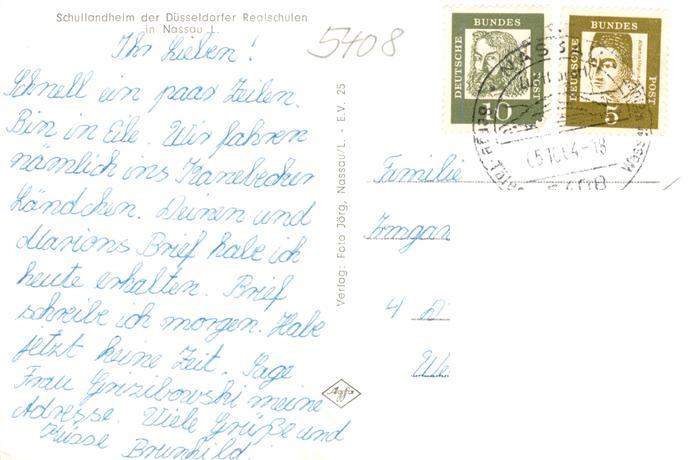 Schullandheim der Düsseldorfer Realschulen
in Nassau L.
5408
Ihr Lieben!
Schnell ein paar Zeilen.
Bin in Eile. Wir fahren
nämlich ins Kanebecker
Ländchen. Deinen und
Marions Brief habe ich
heute erhalten. Brief
schreibe ich morgen. Habe
jetzt keine Zeit. Sage
Frau Grizibowski meine
Adresse. Viele Grüße und
Küsse Brunhild.
Verlag: Foto Jörg, Nassau/L. - E.V. 25
Agfa
DEUTSCHE
BUNDES
POST
10
DEUTSCHE
BUNDES
POST
5
NASSAU
Familie
Irmgar
4 Di
We